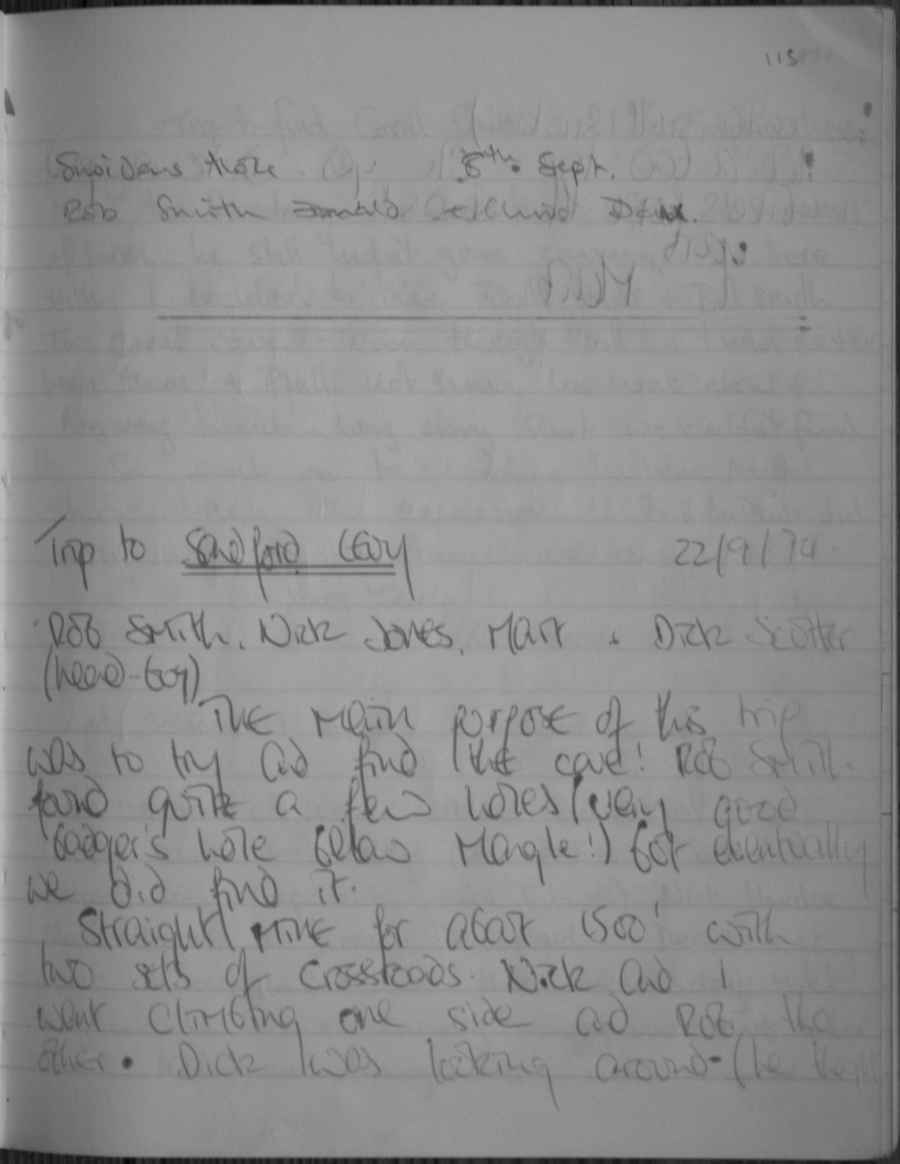 115
Swoidons Hole. 8th. Sept.
Rob Smith
Trip to Sandford Levy 22/9/74
Rob Smith. Nick Jones. Mart & Dick Scotter
(head-boy)
The Main purpose of this trip
was to try ad find the cave! Rob Smith.
found quite a few holes (very good
badger's hole below Mangle!) but eventually
we did find it.
Straight mine for about 1500' with
two sets of crossroads. Nick and I
went climbing one side ad Rob the
other. Dick was looking around - (he